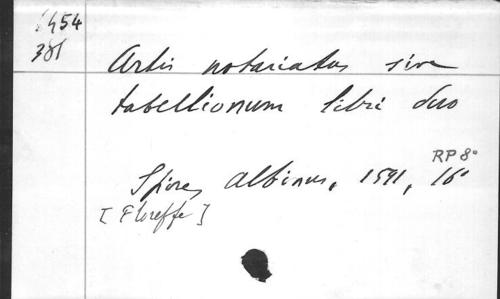 6454
386
Artis notariatus sive
tabellionum libri duo
RP 8°
Spires, Albinus, 1591, 16°
[Floreffe]